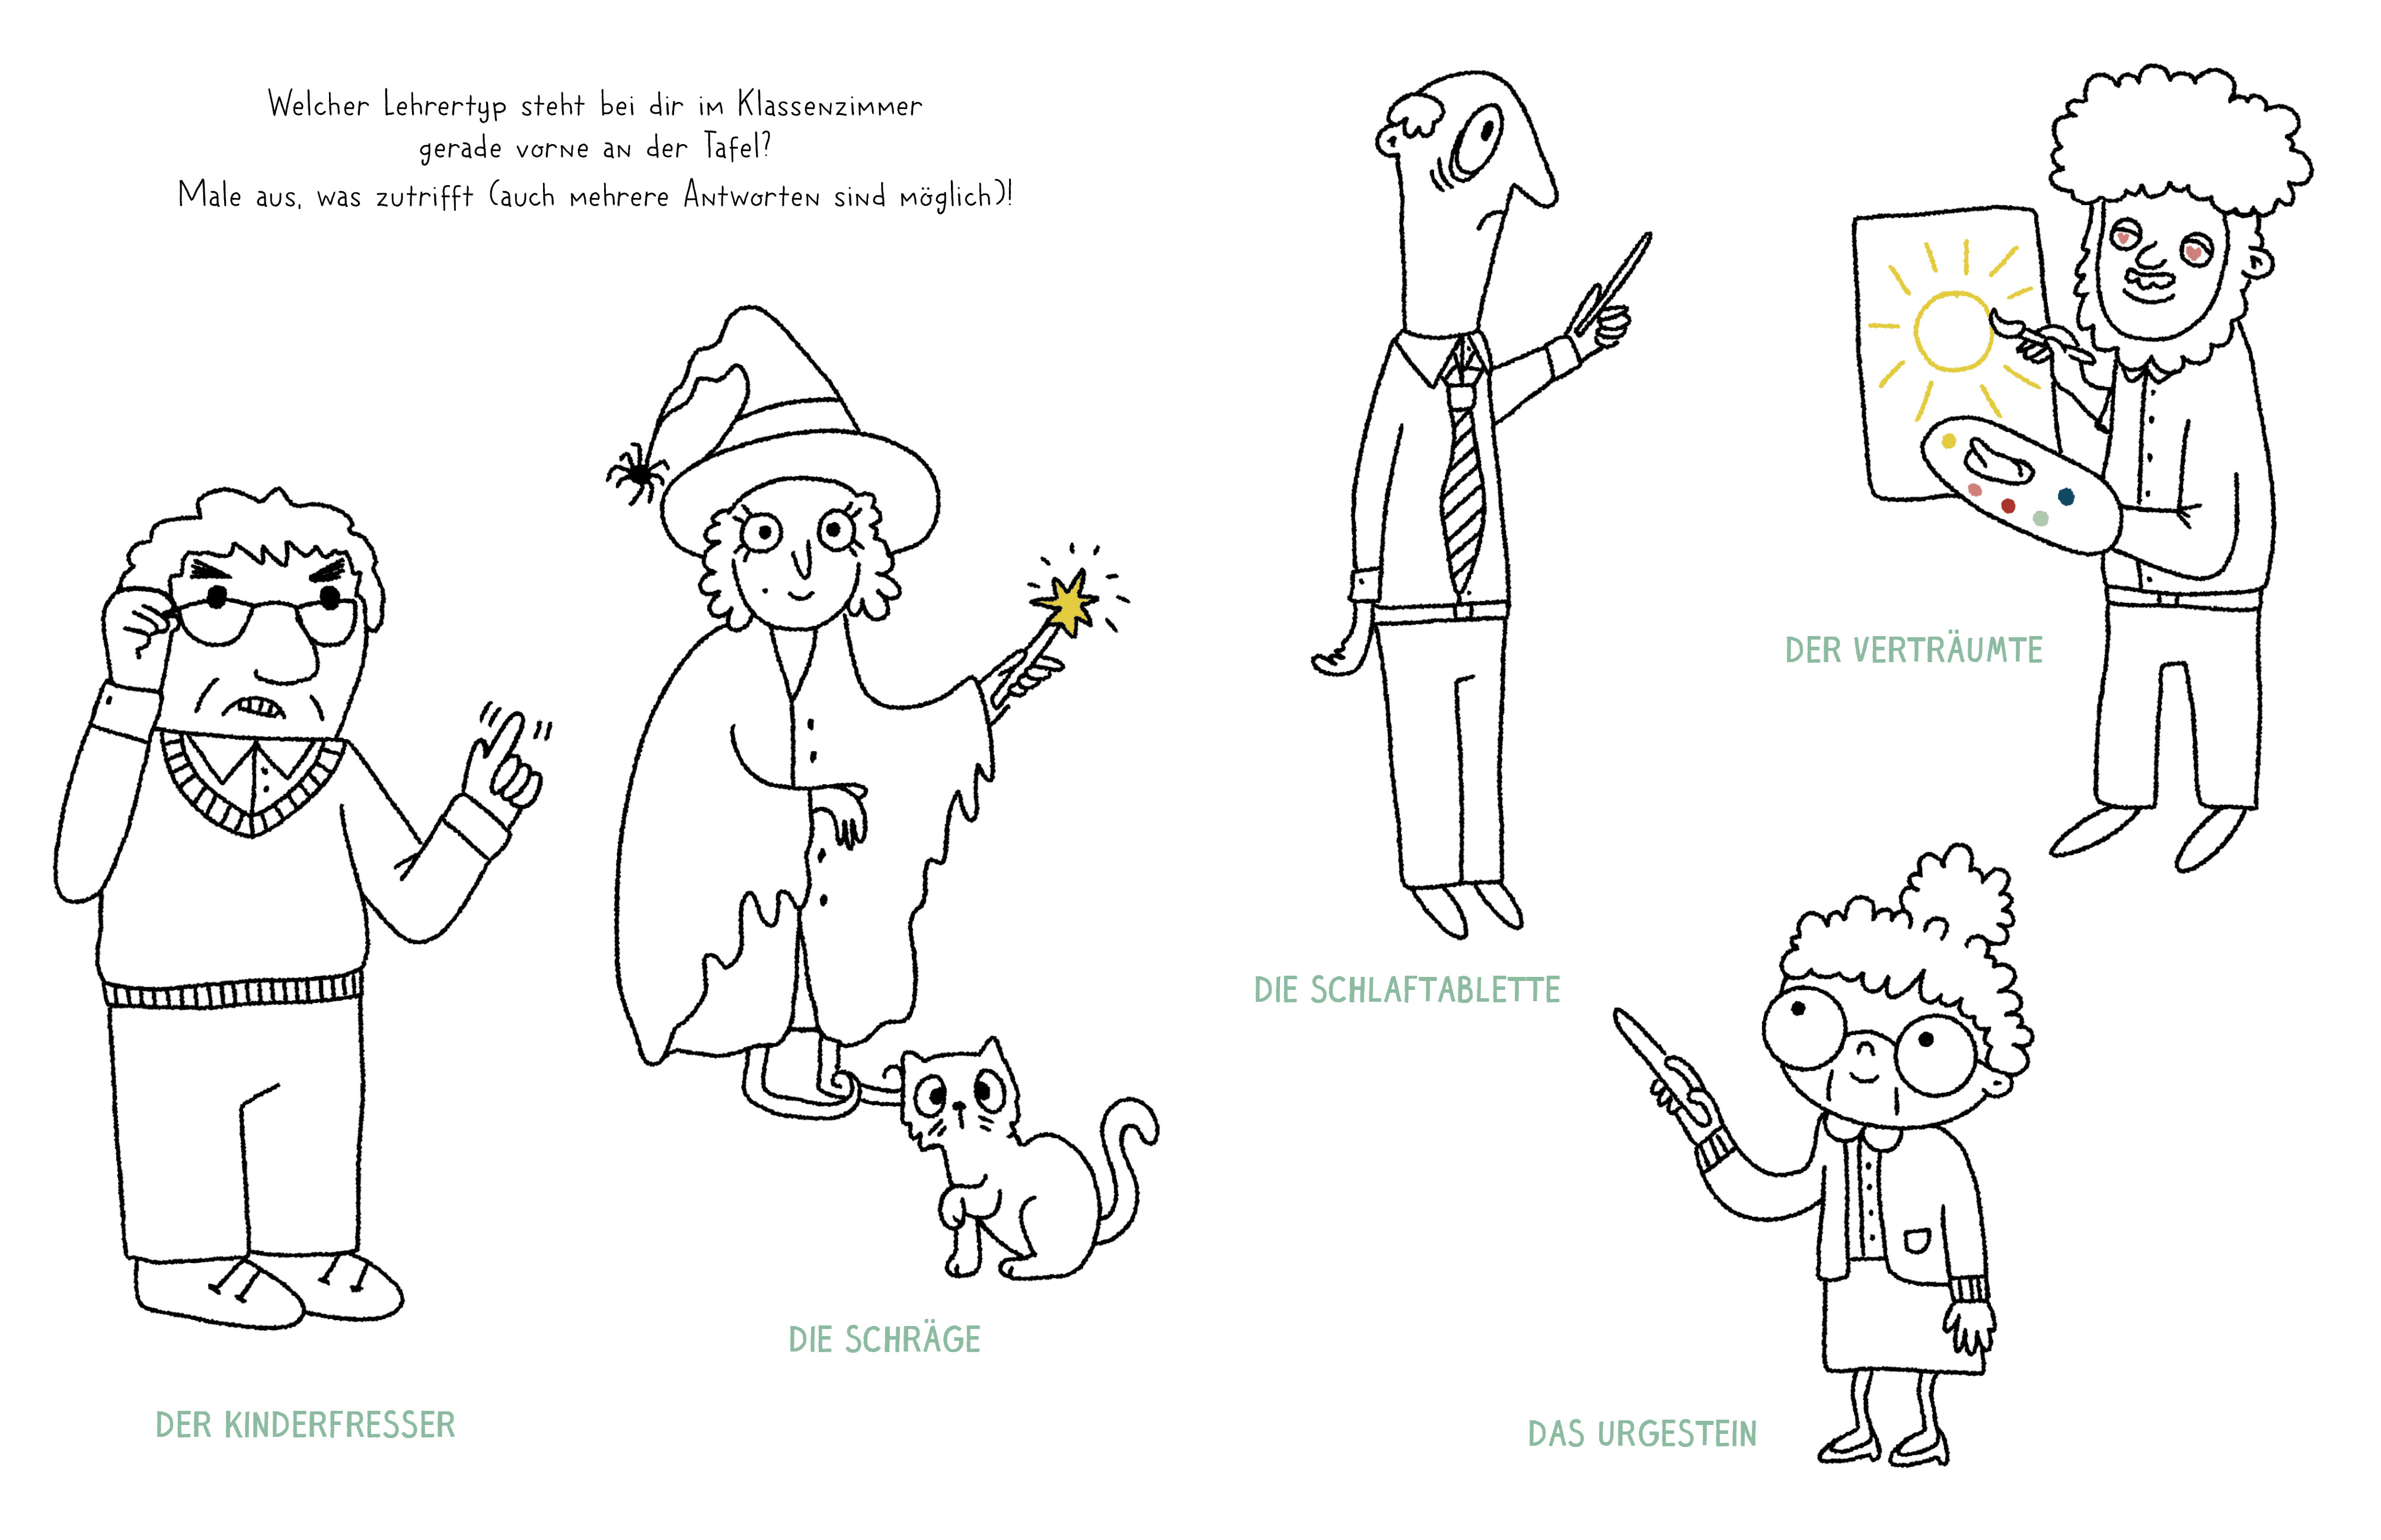 Welcher Lehrertyp steht bei dir im Klassenzimmer
gerade vorne an der Tafel?
Male aus, was zutrifft (auch mehrere Antworten sind möglich)!
DER VERTRÄUMTE
DIE SCHLAFTABLETTE
DIE SCHRÄGE
DER KINDERFRESSER
DAS URGESTEIN